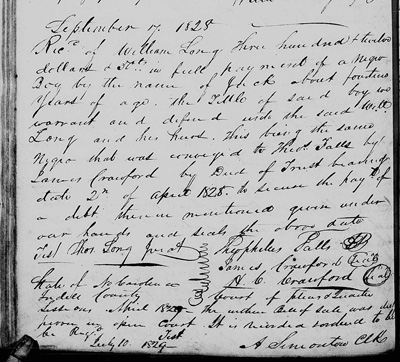 September 17. 1828
Recd. of William Long three hundred & twelve
dollars & 50cts in full payment of a Negro
Boy by the name of Jack about fourteen
years of age. the Title of said boy we
warrant and defend unto the said Will
Long and his heirs. this being the same
Negro that was conveyed to Theos. Falls by
James Crawford by Deed of Trust bearing
date 2nd of April 1828. to secure the payt. of
a debt therein mentioned given under
our hands and seals the above date
Test Thos Long Jurat Theophilus Falls
James Crawford
A C Crawford
State of No Carolina
Iredell County Court of pleas & Quarter
Sessions April 1829 The within Bill of Sale was duly
proven in open Court It is recorded ordered to
be Regd. Test
July 10. 1829 A Simonton Clk